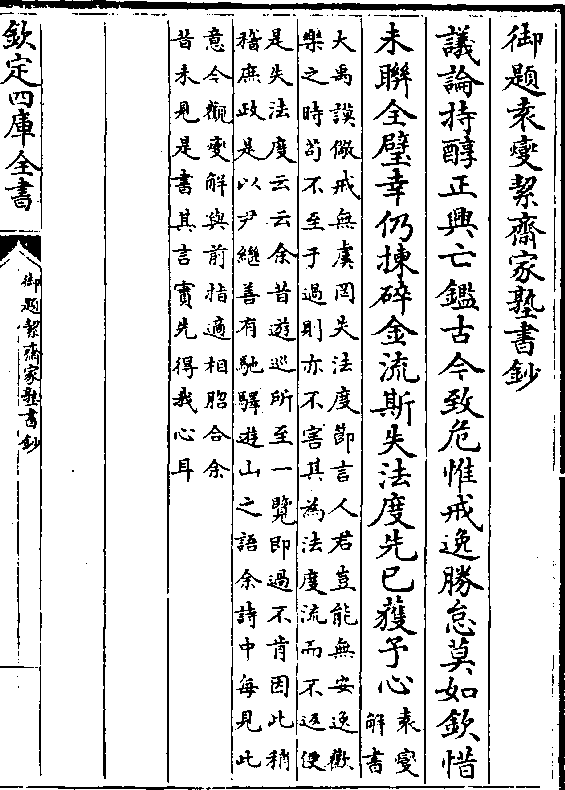 御題袁燮絜齋家塾書鈔
議論持醇正興亡鑑古今致危惟戒逸勝怠莫如欽惜
未聯全璧幸仍揀碎金流斯失法度先已獲予心袁燮
解書
大禹謨儆戒無虞罔失法度節言人君豈能無安逸歡
樂之時茍不至于過則亦不害其為法度流而不返便
是失法度云云余昔遊巡所至一覽即過不肯因此稍
稽庶政是以尹繼善有馳驛遊山之語余詩中每見此
意今觀燮解與前指適相脗合余
昔未見是書其言實先得我心耳
欽定四庫全書
御題絜齋家塾書鈔